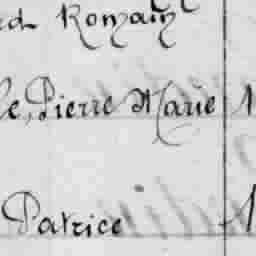 Romain
Pierre Marie 1
Patrice 1